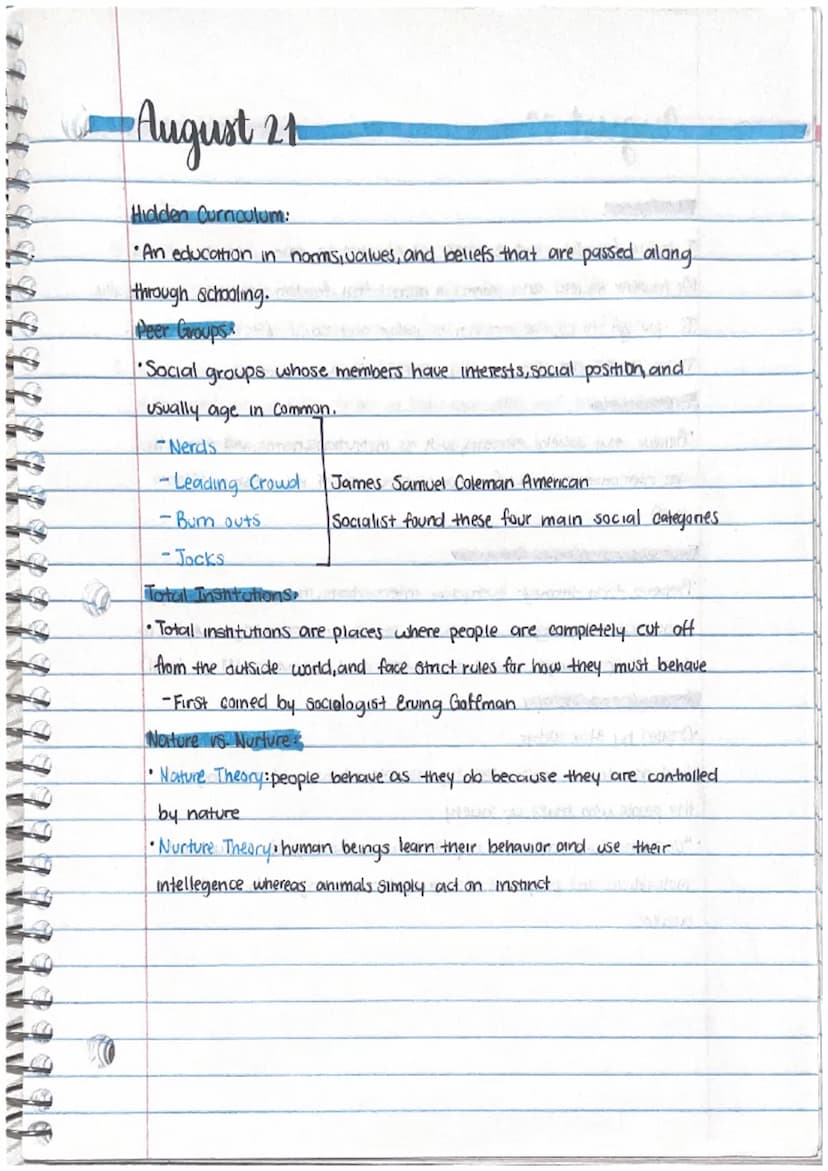 August 21
Hidden Curriculum:
•An education in norms, values, and beliefs that are passed along
through schooling.
Peer Groups:
•Social groups whose members have interests, social position, and
usually age in common.
-Nerds
-Leading Crowd James Samuel Coleman American
-Burn outs Socialist found these four main social categories
-Jocks
Total Institutions:
•Total institutions are places where people are completely cut off
from the outside world, and face strict rules for how they must behave
-First coined by sociologist Erving Goffman
Nature vs. Nurture:
•Nature Theory: people behave as they do because they are controlled
by nature
•Nurture Theory: human beings learn their behavior and use their
intellegence whereas animals simply act on instinct